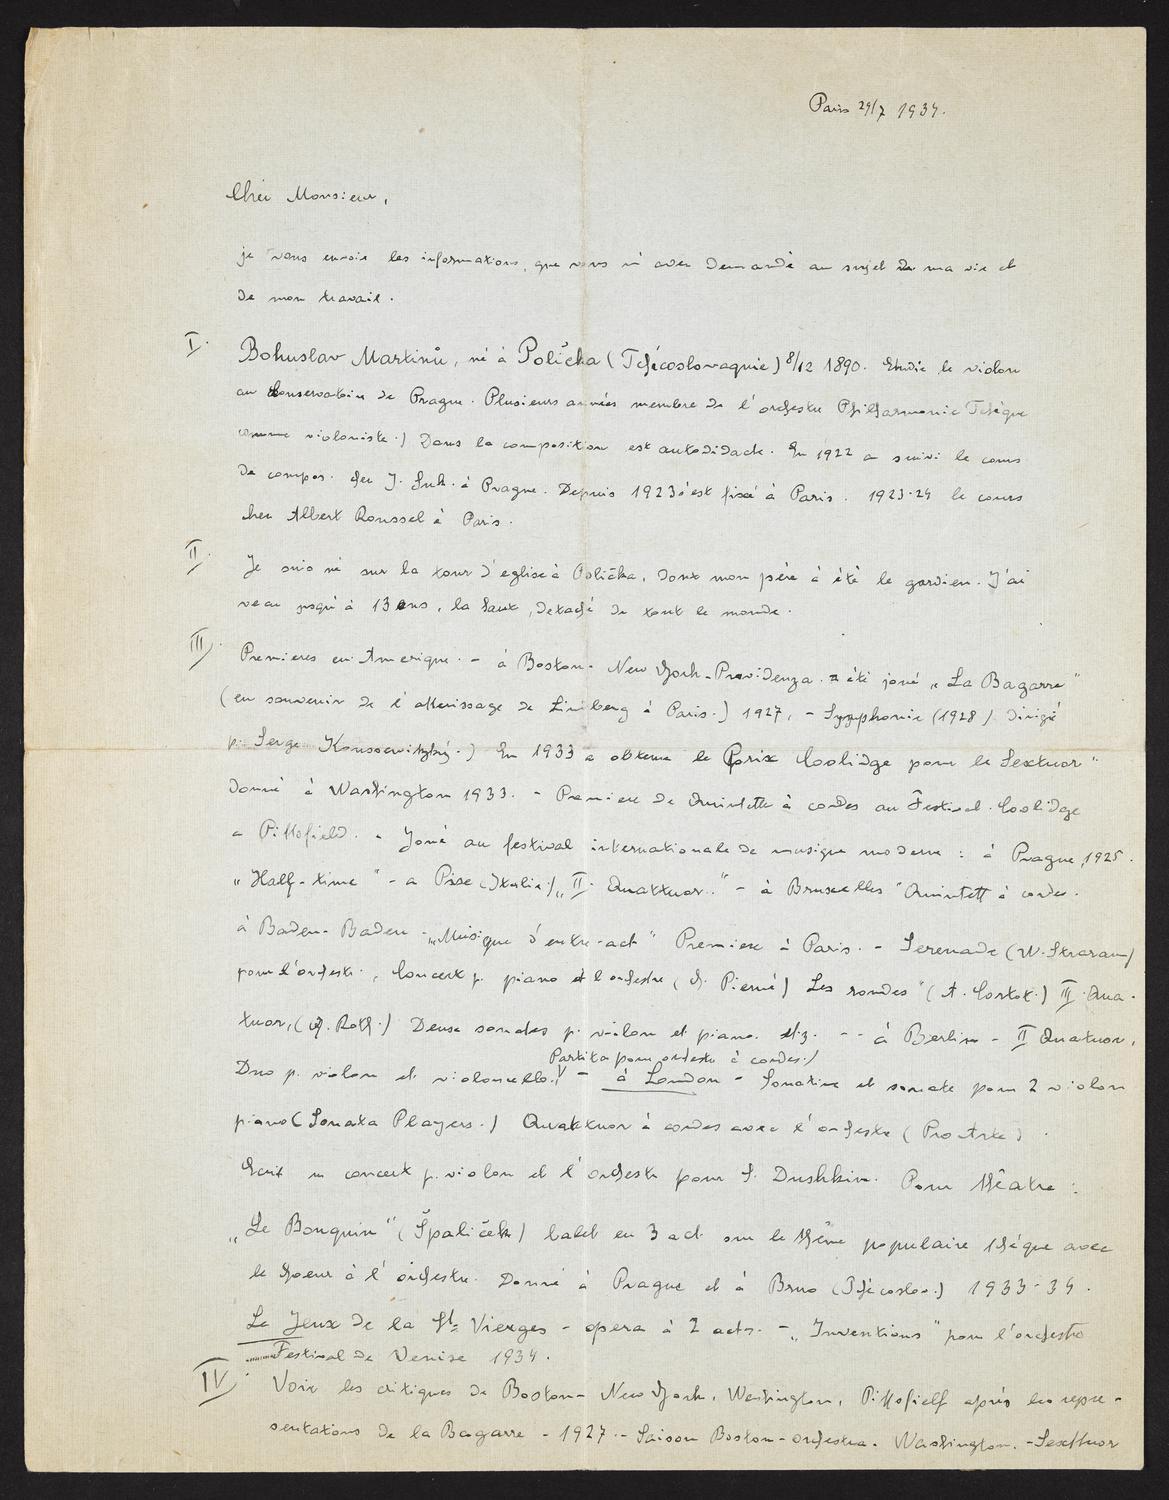 Paris 29/7 1934.
Cher Monsieur,
je vous envoie les informations, que vous m'avez demandé au sujet de ma vie et
de mon travail.
I. Bohuslav Martinů, né à Polička (Tchécoslovaquie) 8/12 1890. Etudie le violon
au Conservatoire de Prague. Plusieurs années membre de l'orchestre Philharmonie Tchèque
comme violoniste.) Dans la composition est autodidacte. En 1922 a suivi le cours
de compos. chez J. Suk. à Prague. Depuis 1923 s'est fixé à Paris. 1923-24 le cours
chez Albert Roussel à Paris.
II. Je suis né sur la tour d'eglise à Polička, dont mon père à été le gardien. J'ai
vecu jusqu'à 13 ans, la haut, detaché de tout le monde.
III. Premieres en Amerique. - à Boston - New York - Providenza. a été joué „La Bagarre"
(en souvenir de l'atterissage de Lindberg à Paris.) 1927, - Symphonie (1928) dirigé
p. Serge Koussewitzký.) En 1933 a obtenu le Prix Coolidge pour le Sextuor"
donné à Washington 1933. - Premiere de Quintette à cordes au Festival Coolidge
a Pittsfield. - Joué au festival internationale de musique moderne : à Prague, 1925.
„Half-time" - a Pise (Italie) „II. Quattuor." - à Bruxelles "Quintett à cordes.
à Baden-Baden - „Musique d'entre-act" Premiere à Paris. - Serenade (W. Straram)
pour l'orchestr., Concert p. piano et l'orchestre (G. Pierné) Les rondes" (A. Cortot.) III. Qua-
tuor, (q. Roth.) Deux sonates p. violon et piano. etz. -- à Berlin - II Quatuor,
Partita pour orchestre à cordes.)
Duo p. violon et violoncello.) - à London - Sonatine et sonate pour 2 violon
piano (Sonata Players.) Quattuor à cordes avec l'orchestre (Pro Arte)
Ecrit un concert p. violon et l'orchestr pour S. Dushkin. Pour théatre :
„Le Bouquin" (Špaliček) balet en 3 act sur le thême populaire tchèque avec
le choeur à l'orchestre. Donné à Prague et à Brno (Tchécoslov.) 1933-34.
Le Jeux de la Ste Vierges - opera à 2 acts. - „Inventions" pour l'orchestre
Festival de Venise 1934.
IV. Voir les critiques de Boston - New York, Washington, Pittsfielf après les repre-
sentations de la Bagarre - 1927 - Saison Boston-orchestra. Washington. - Sexttuor